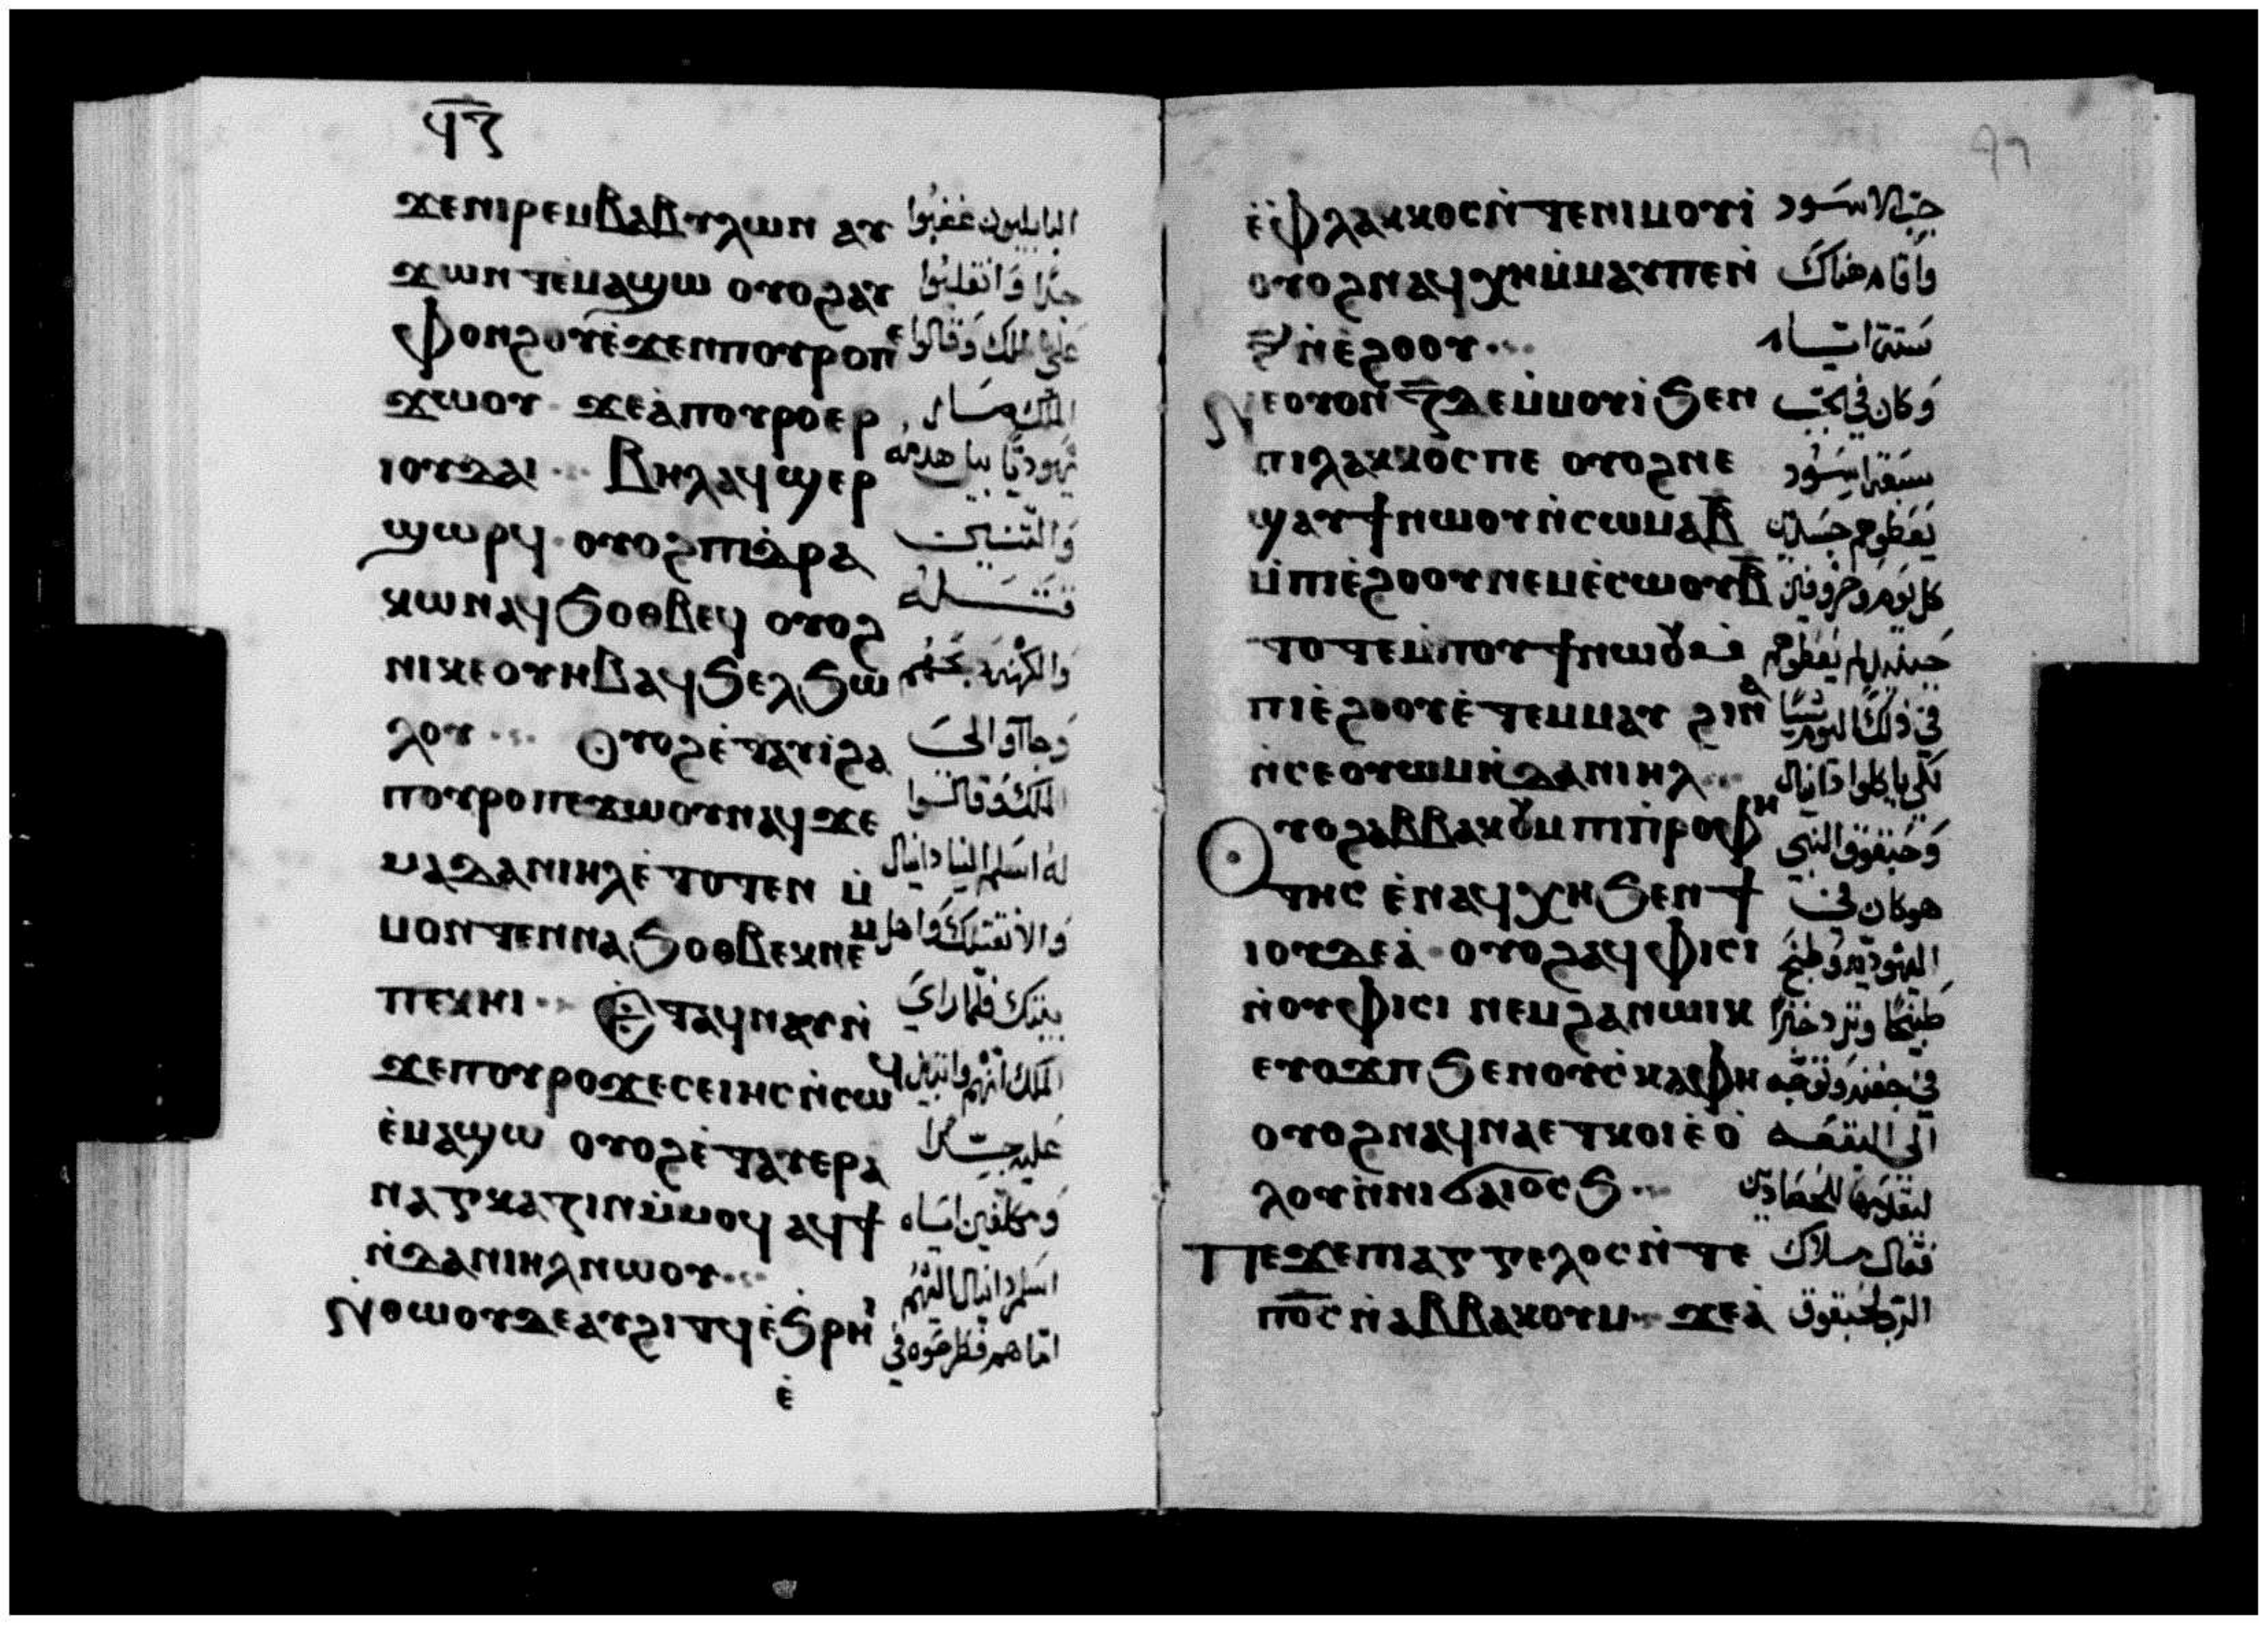 ϥⲍ
ϫⲉⲛⲓⲣⲉⲙⲃⲁⲃⲩⲗⲱⲛ ⲁⲩ البابليون غضبوا
ϫⲱⲛⲧⲉ̀ⲙⲁϣⲱ ⲟⲩⲟϩⲁⲩ جدًا وانقلبوا
ⲫⲟⲛϩⲟⲩⲉ̀ϫⲉⲛⲡⲟⲩⲣⲟⲡⲉ على الملك وقالوا
ϫⲱⲟⲩ ϫⲉⲁ̀ⲡⲟⲩⲣⲟⲉⲣ الملك صار
ⲓⲟⲩⲇⲁⲓ ⲃⲏⲗⲁϥϣⲉⲣ يهوديًا بيل هدمه
ϣⲱⲣϥ ⲟⲩⲟϩⲡⲓⲇⲣⲁ والتنين
ⲕⲱⲛⲁϥϧⲟⲑⲃⲉϥ ⲟⲩⲟϩ قتله
ⲛⲓⲕⲉⲟⲩⲏⲃⲁϥϧⲉⲗϧⲱ والكهنة
ⲗⲟⲩ ⲟⲩⲟϩⲉ̀ⲧⲁⲩⲓ̀ϩⲁ وجآوا الى
ⲡⲟⲩⲣⲟⲡⲉϫⲱⲟⲩⲛⲁϥϫⲉ الملك وقالوا
ⲙⲁⲇⲁⲛⲓⲏⲗⲉ̀ⲧⲟⲧⲉⲛ ⲙ̀ له اسلم الينا دانيال
ⲙⲟⲛⲧⲉⲛⲛⲁϧⲟⲑⲃⲉⲕⲛⲉⲙ والا نقتلك واهل
ⲡⲉⲕⲏⲓ ⲉ̀ⲧⲁϥⲛⲁⲩⲛ̀ بيتك فلما راي
ϫⲉⲡⲟⲩⲣⲟϫⲉⲥⲉⲓⲏⲥⲛ̀ⲥⲱϥ الملك انهم
ⲉ̀ⲙⲁϣⲱ ⲟⲩⲟϩⲉ̀ⲧⲁⲩⲉⲣⲁ عليه جدا
ⲛⲁⲅⲕⲁⲍⲓⲛⲙ̀ⲙⲟϥ ⲁϥϯ ومكلفين اياه
ⲛ̀ⲇⲁⲛⲓⲏⲗⲛⲱⲟⲩ اسلم دانيال اليهم
ⲛⲑⲱⲟⲩⲇⲉⲁⲩϩⲓⲧϥⲉ̀ϧⲣⲏⲓ اما هم فطرحوه في
ⲉ̀
٩٦
ⲉ̀ⲫⲗⲁⲕⲕⲟⲥⲛ̀ⲧⲉⲛⲓⲙⲟⲩⲓ̀ جب الاسود
ⲟⲩⲟϩⲛⲁϥⲭⲏⲙ̀ⲙⲁⲩⲡⲉⲛ̀ واقام هناك
ⲋ̄ⲛ̀ⲉ̀ϩⲟⲟⲩ ستة ايام
ⲛⲉⲟⲩⲟⲛ ⲍ̄ⲇⲉⲙ̀ⲙⲟⲩⲓ̀ϧⲉⲛ وكان في الجب
ⲡⲓⲗⲁⲕⲕⲟⲥⲡⲉ ⲟⲩⲟϩⲛⲉ سبعة اسود
ϣⲁⲩϯⲛⲱⲟⲩⲛ̀ⲥⲱⲙⲁⲃ̄ يعطوهم جسدين
ⲙ̀ⲡⲓⲉ̀ϩⲟⲟⲩⲛⲉⲙⲉ̀ⲥⲱⲟⲩⲃ̄ كل يوم وخروفين
ⲧⲟⲧⲉⲙ̀ⲡⲟⲩϯⲛⲱⲟⲩ حينيذ لم يعطوهم
ⲡⲓⲉ̀ϩⲟⲟⲩⲉ̀ⲧⲉⲙⲙⲁⲩ ϩⲓⲛⲁ في ذلك اليوم شيًا
ⲛ̀ⲥⲉⲟⲩⲱⲙⲛ̀ⲇⲁⲛⲓⲏⲗ لكي ياكلوا دانيال
ⲟⲩⲟϩⲁⲃⲃⲁⲕⲟⲩⲙⲡⲓⲡ̀ⲣⲟⲫⲏ وحبقوق النبي
ⲧⲏⲥ ⲉ̀ⲛⲁϥⲭⲏϧⲉⲛϯ هو كان في
ⲓⲟⲩⲇⲉⲁ̀ ⲟⲩⲟϩⲁϥⲫⲓⲥⲓ اليهودية وطبخ
ⲛ̀ⲟⲩⲫⲓⲥⲓ ⲛⲉⲙϩⲁⲛⲱⲓⲕ طبيخًا وثرد خبزًا
ⲉⲩⲟϫⲡϧⲉⲛⲟⲩⲥ̀ⲕⲁⲫⲏ في جفنه وتوجه
ⲟⲩⲟϩⲛⲁϥⲛⲁⲉⲧⲕⲟⲓⲉ̀ⲟ̀ الى البقعه
ⲗⲟⲩⲛ̀ⲛⲓϭⲁⲓⲟⲥϧ ليقدمها للحصادين
ⲡⲉϫⲉⲡⲓⲁⲅⲅⲉⲗⲟⲥⲛ̀ⲧⲉ فقال ملاك
ⲡⲟ̄ⲥ̄ⲛ̀ⲁⲃⲃⲁⲕⲟⲩⲙ ϫⲉⲁ̀ الرب لحبقوق